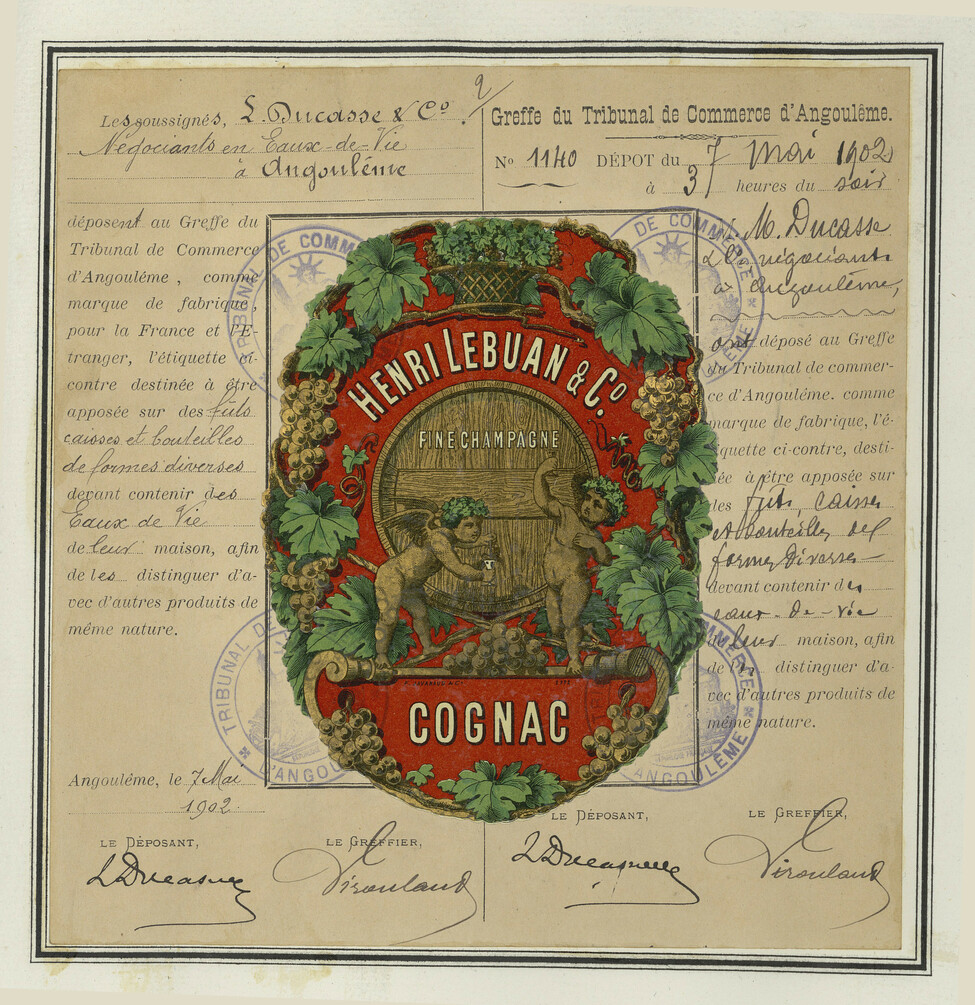 2/
Les soussignés, L. Ducasse & Co.
Négociants en Eaux-de-Vie
à Angoulême
déposent au Greffe du
Tribunal de Commerce
d'Angoulême, comme
marque de fabrique,
pour la France et l'É-
tranger, l'étiquette ci-
contre destinée à être
apposée sur des fûts
caisses et bouteilles
de formes diverses
devant contenir des
Eaux de Vie
de leur maison, afin
de les distinguer d'a-
vec d'autres produits de
même nature.
Angoulême, le 7 Mai
1902.
LE DÉPOSANT,
LE GREFFIER,
L Ducasse
Viroulaud
Greffe du Tribunal de Commerce d'Angoulême.
No 1140 DÉPOT du 7 mai 1902
à 3 heures du soir
M. Ducasse
& Co négociants
à Angoulême,
ont déposé au Greffe
du Tribunal de commer-
ce d'Angoulême. comme
marque de fabrique, l'é-
tiquette ci-contre, desti-
née à être apposée sur
des fûts, caisses
et bouteilles de
formes diverses
devant contenir des
eaux-de-vie
de leur maison, afin
de les distinguer d'a-
vec d'autres produits de
même nature.
LE DÉPOSANT,
LE GREFFIER,
L Ducasse
Viroulaud
HENRI LEBUAN & Co.
FINE CHAMPAGNE
COGNAC
TRIBUNAL DE COMMERCE
D'ANGOULÊME